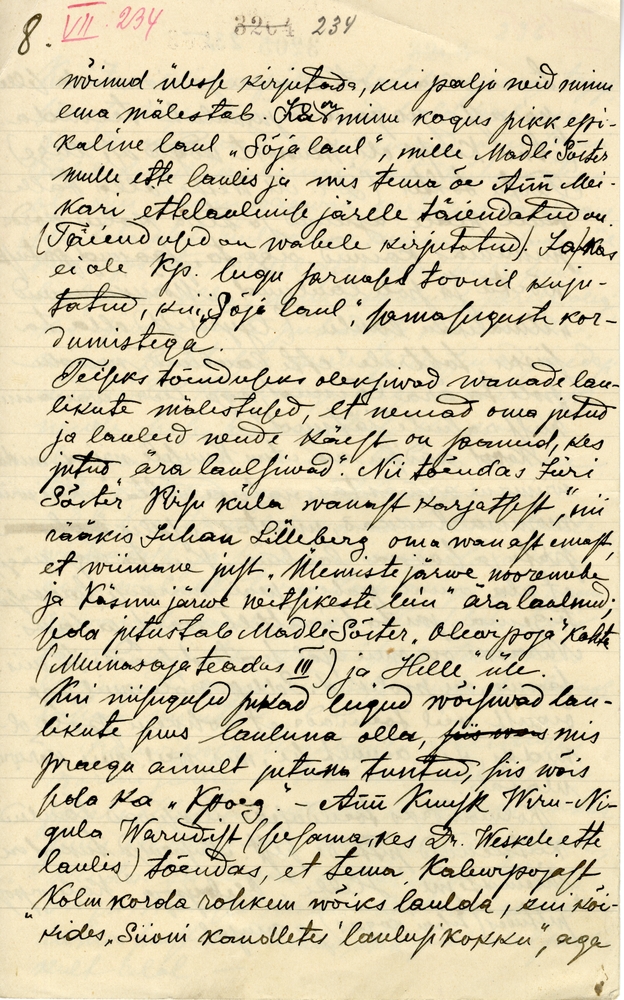 8. VII 234 3204 234
wõinud ülesse kirjutada, kui palju neid minu
ema mälestab. Ka on minu kogus pikk eepi-
kaline laul „Sõja laul“, mille Madli Sõster
mulle ette laulis ja mis tema õe Ann Mei-
kari ettelaulmise järele täiendatud on.
(Täiendused on wahele kirjutatud).
ei ole Kp. lugu sarnasel toonil kirju-
tatud, kui „Sõja laul“, samasuguste kor-
dumistega.
Teiseks tõenduseks oleksiwad wanade lau-
likute mälestused, et nemad oma jutud
ja laulud nende käest on saanud, kes
jutud „ära laulsiwad“. Nii tõendas Jüri
Sõster „Risu küla wanast karjatsest“, nii
rääkis Juhan Lilleberg oma wanast emast,
et wiimane just „Ülemiste järwe nooremehe
ja Käsmu järwe neitsikeste lein“ ära laulnud;
seda jutustab Madli Sõster „Olewipoja“ kohta
(Muinasaja teadus III) ja „Helle“ üle.
Kui niisugused pikad lugud wõisiwad lau-
likute suus lauluna olla, siis was mis
praegu ainult jutuna tuntud, siis wõis
seda ka „Kpoeg“. – Ann Kuusk Wiru-Ni-
gula Warudist (seesama, kes Dr. Weskele ette
laulis) tõendas, et tema „Kalewipojast
kolm korda rohkem wõiks laulda, kui kõi-
kides „Siioni kandletes“ laulusi kokku“, aga